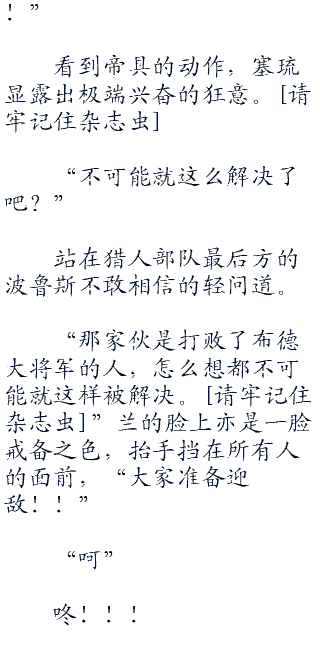 ！”
看到帝具的动作，塞琉
显露出极端兴奋的狂意。[请
牢记住杂志虫]
“不可能就这么解决了
吧？”
站在猎人部队最后方的
波鲁斯不敢相信的轻问道。
“那家伙是打败了布德
大将军的人，怎么想都不可
能就这样被解决。[请牢记住
杂志虫]”兰的脸上亦是一脸
戒备之色，抬手挡在所有人
的面前，“大家准备迎
敌！！”
“呵”
咚！！！